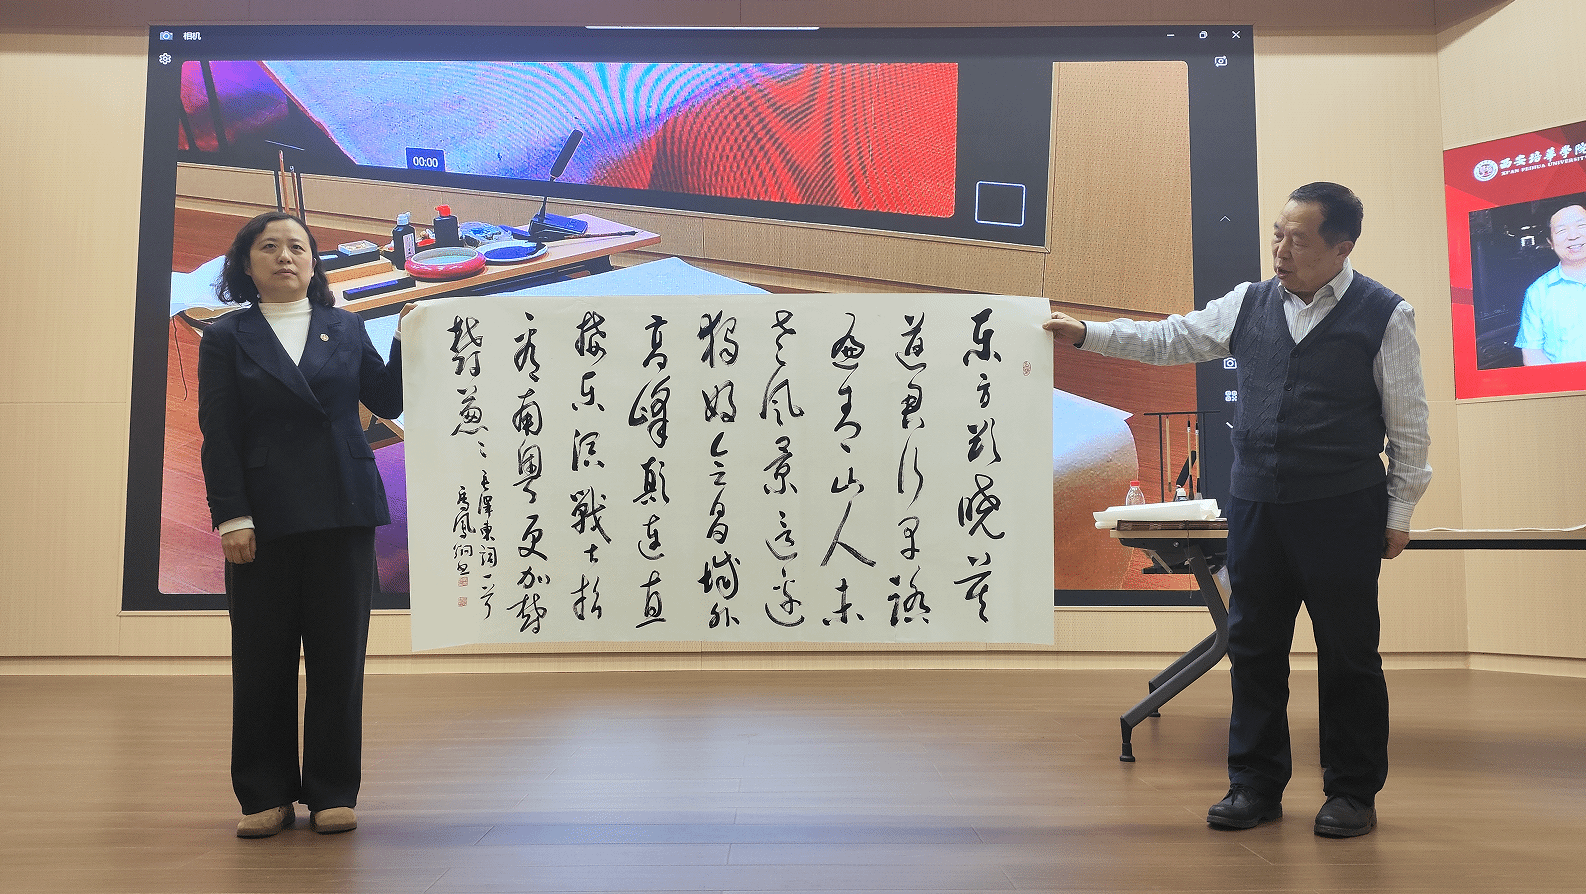 相机
00:00
西安培華学院
XI'AN PEIHUA UNIVERSITY
东方欲晓莫
道君行早踏
遍青山人未
老风景这边
独好会昌城外
高峰颠连直
接东溟戰士指
看南粤更加郁
郁葱々
毛澤東詞一首